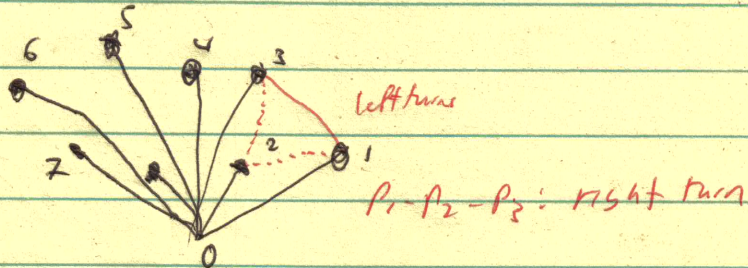 5
6
4
3
left turns
2
1
7
P1-P2-P3: right turn
0